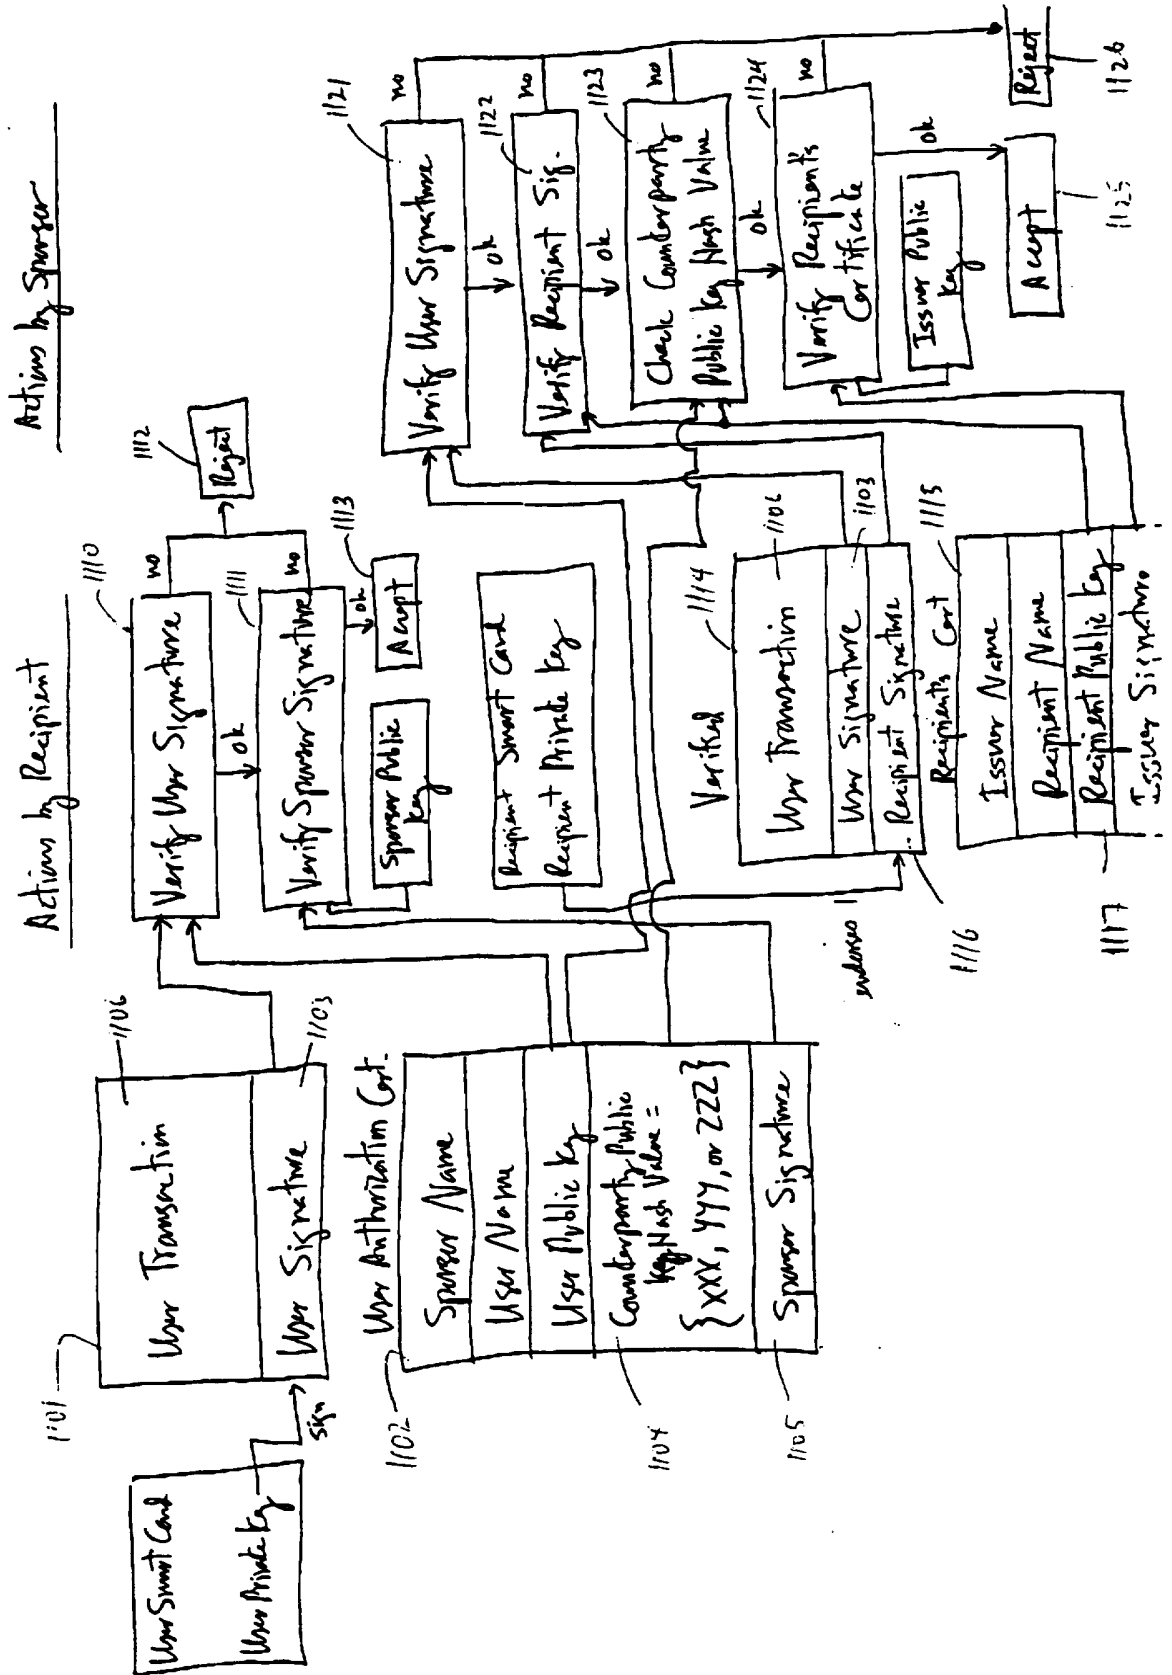 User Smart Card
User Private Key
sign
1101
User Transaction
1106
User Signature
1103
1102
User Authorization Cert.
Sponsor Name
User Name
User Public Key
Counterparty Public
Key Hash Value =
{XXX, YYY, or ZZZ}
1104
Sponsor Signature
1105
Actions by Recipient
1110
Verify User Signature
no
ok
1111
Verify Sponsor Signature
no
ok
Reject
1112
Sponsor Public
Key
Accept
1113
Recipient Smart Card
Recipient Private Key
endorses
Verified
1114
User Transaction
1106
User Signature
1103
Recipient Signature
1116
Recipient's Cert
1115
Issuer Name
Recipient Name
Recipient Public Key
1117
Issuer Signature
Actions by Sponsor
1121
Verify User Signature
no
ok
1122
Verify Recipient Sig.
no
ok
1123
Check Counterparty
Public Key Hash Value
no
ok
1124
Verify Recipient's
Certificate
no
ok
Issuer Public
Key
Accept
1125
Reject
1126